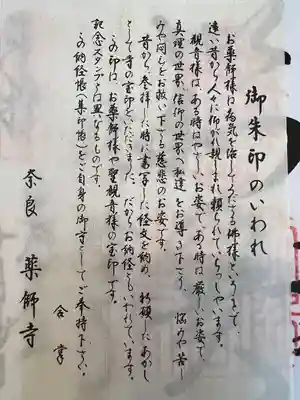 御朱印のいわれ
お薬師様は病気を治して下さる佛様というて、
遠い昔から人々に仰がれ親しまれ頼られていらっしゃいます。
観音様は、ある時はやさしいお姿で、ある時は厳しいお姿で、
真理の世界、信仰の世界へ私達をお導き下さり、悩みや苦し
みや悶えをお救い下さる慈悲のお姿です。
昔から参拝した時に書写した経文を納め、祈願したあかし
として寺の宝印をいただきました。だからお納経ともいわれています。
この印は、お薬師様や聖観音様の宝印です。
記念スタンプとは異なるものです。
この納経帳(集印帖)をご自身の御守としてご奉持下さい。
奈良 薬師寺
合掌